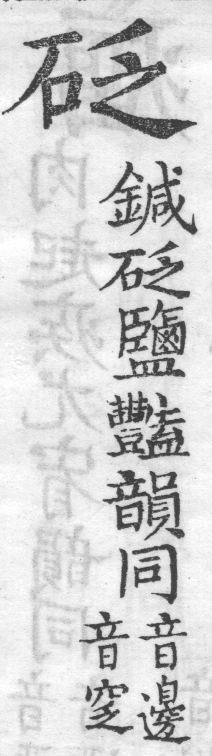 砭
鍼砭鹽豔韻同
音邊
音窆